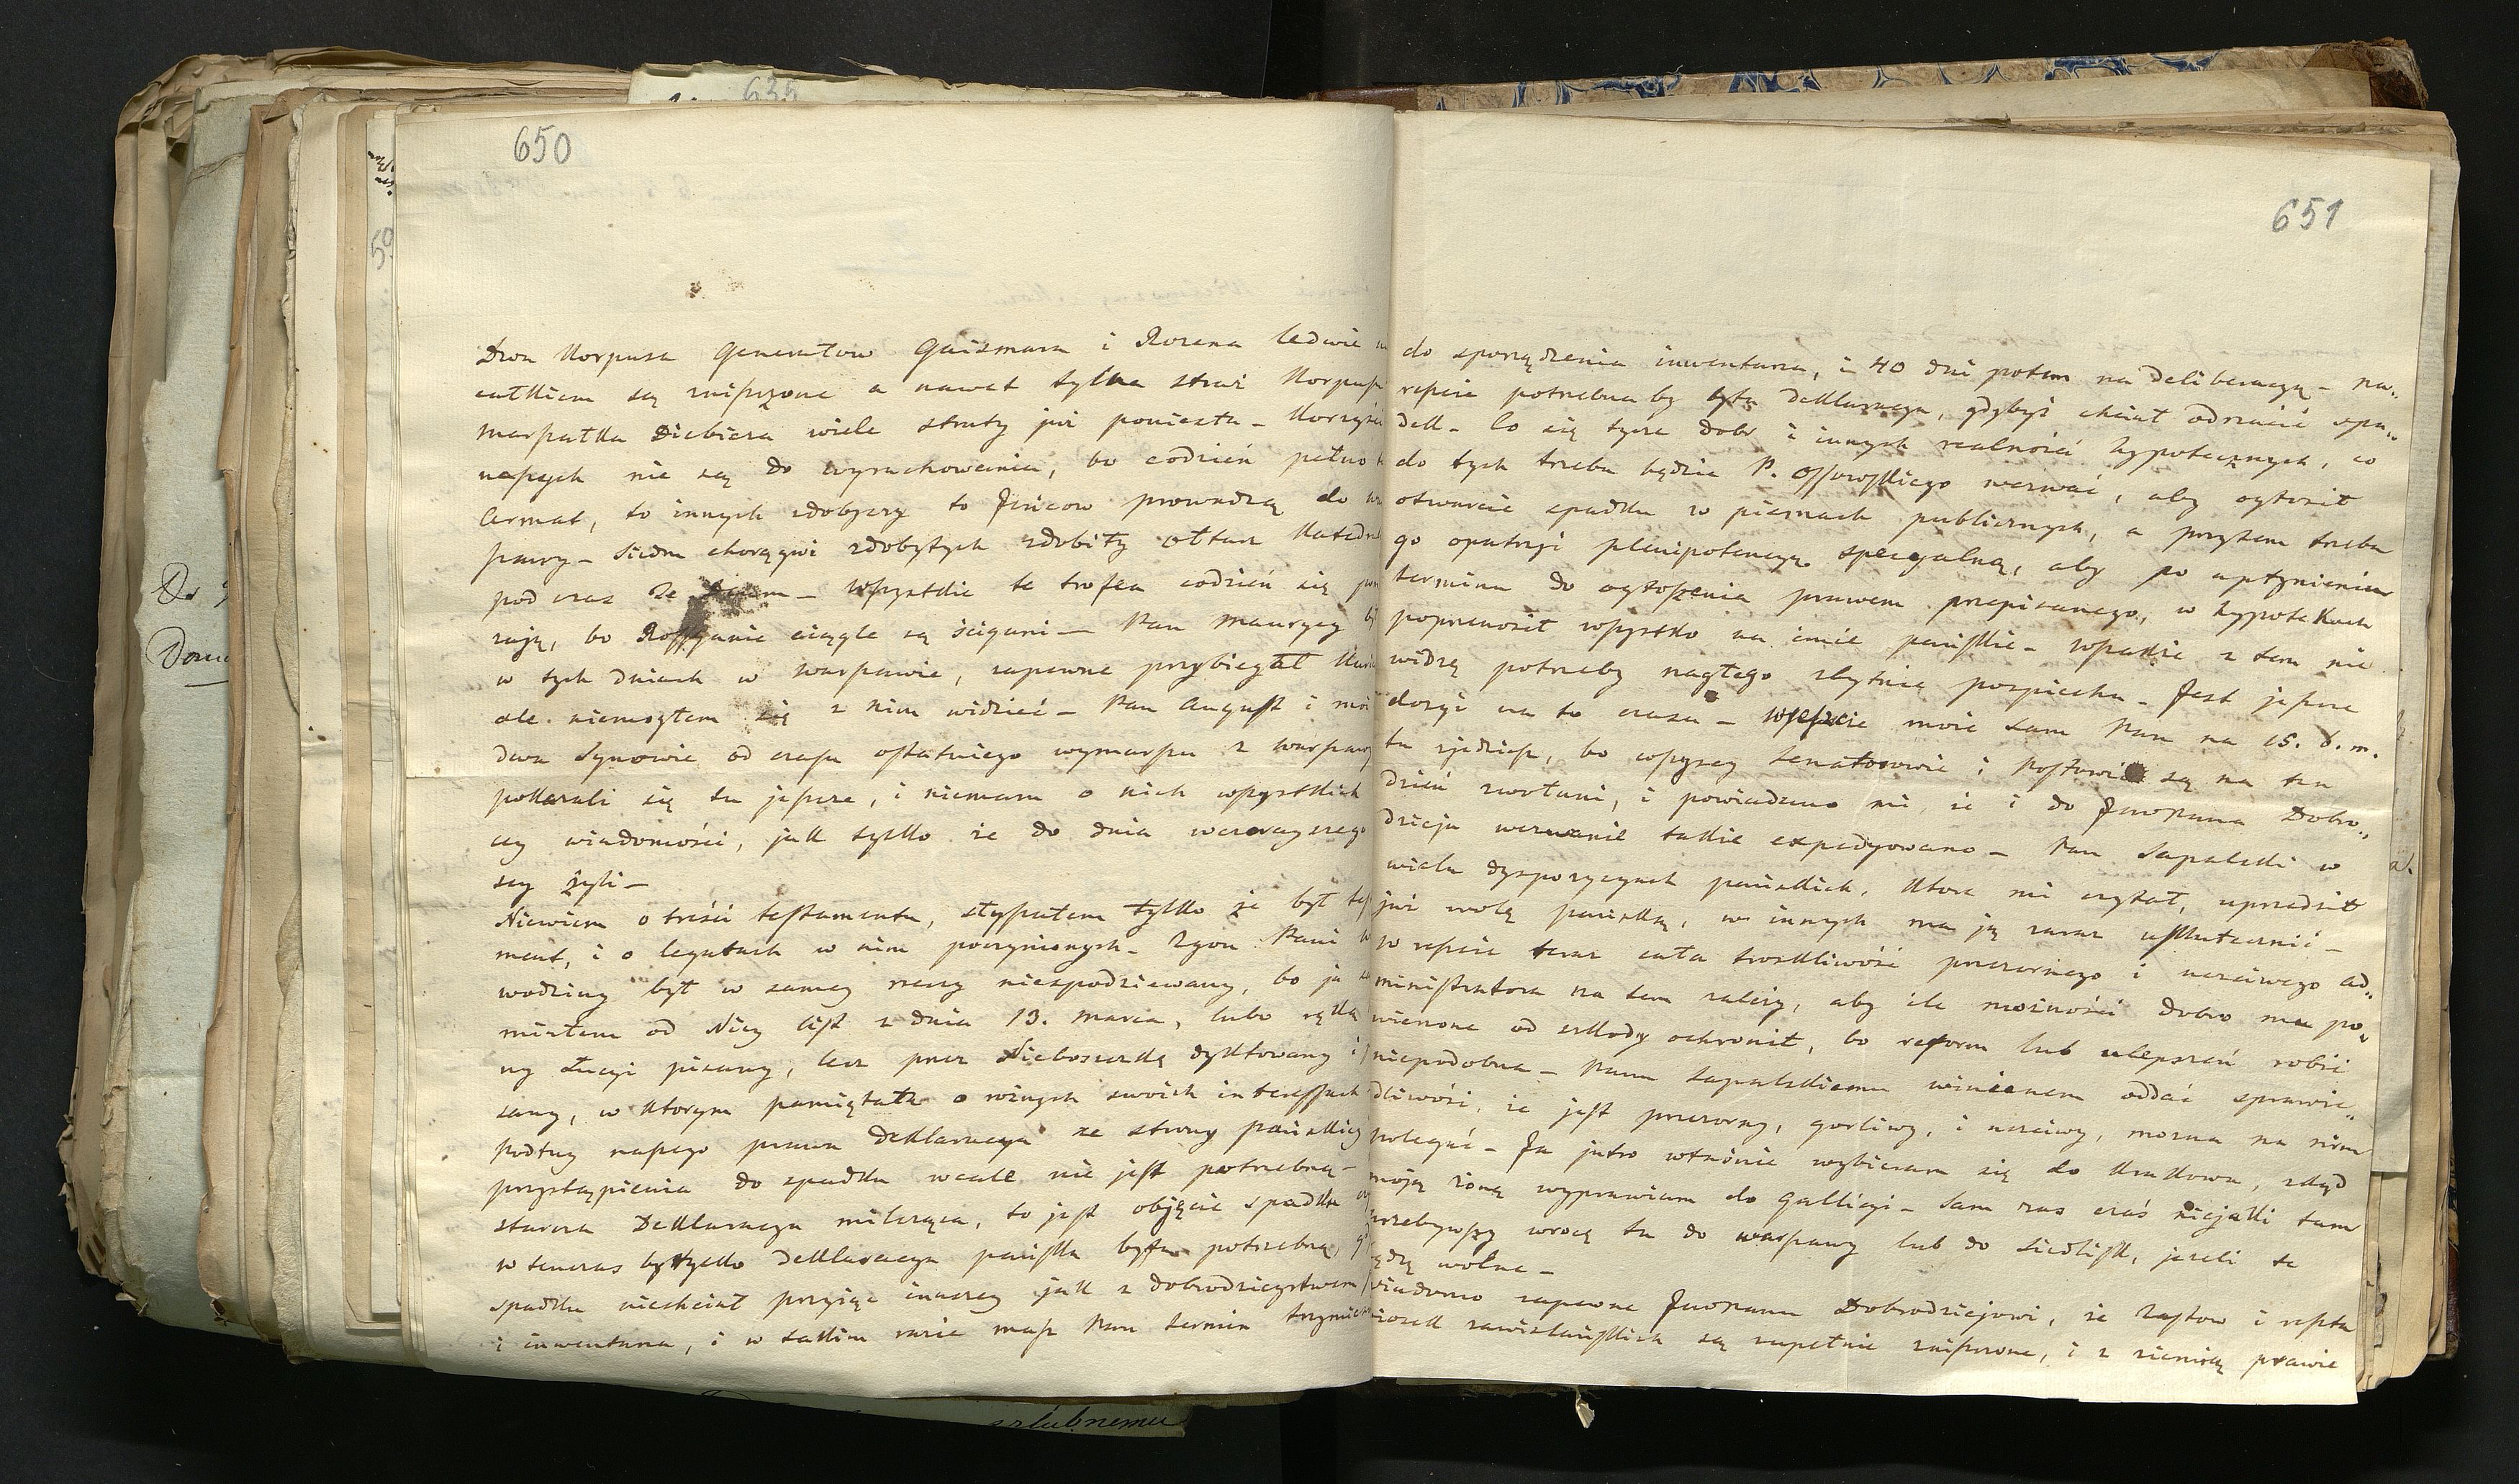 635
650
Dwa Korpusa Generałow Gaismara i Rozena ledwie
całkiem są zniszczone a nawet tylna straż Korpusu
marszałka Diebicza wiele straty już poniosła – Korzyści
naszych nie są do wyrachowania, bo codzień pełno
armat, to innych zdobyczy to Jeńcow prowadzą do
szawy – Siedm chorągwi zdobytych zdobiły ołtarz Katedr
pod czas Te – wszystkie te trofea codzień się
zają, bo Rossyanie ciągle są ścigani – Pan Maurycy
w tych dniach w Warszawie, zapewne przybiegał
ale niemogłem się z nim widzieć – Pan August i moi
dwa Synowie od czasu ostatniego wymarszu z Warszawy
pokazali się tu jeszcze, i niemam o nich wszystkich
cey wiadomości, jak tylko że do dnia wczorayszego
scy żyli –
Niewiem o treści testamentu, słyszałem tylko że był
ment, i o legatach w nim poczynionych – Zgon Pani
wodziny był w samey rzeczy niespodziewany, bo ja
miałem od Niey list z dnia 13. marca, lubo ręką
ny Łucyi pisany, lecz przez Nieboszczkę dyktowany i
sany, w ktorym pamiętała o rożnych swoich interessach
Podług naszego prawa deklaracya ze strony pańskiey
przystąpienia do spadku wcale nie jest potrzebną –
starcza Deklaracya milcząca, to jest objęcie spadku
w tenczas by tylko deklaracya pańska była potrzebną,
spadku niechciał przyjąc inaczey jak z dobrodzieystwem
i inwentarza, i w takim razie masz Pan termin
651
do sporządzenia inwentarza, i 40 dni potem na deliberacyą – na„
reszcie potrzebna by była deklaracya, gdybyś chciał odrzucić spa„
dek – Co się tycze dobr i innych realności hypotecznych, co
do tych trzeba będzie P. Ossowskiego wezwać, aby ogłosił
otwarcie spadku w pismach publicznych, a przytem trzeba
go opatrzyć plenipotencyą specyalną, aby po upłynieniu
terminu do ogłoszenia prawem przepisanego, w hypotekach
poprzenosił wszystko na imie pańskie – wszakże z tem nie
widzę potrzeby nagłego zbytnie pospiechu – Jest jeszcze
dosyć na to czasu – wreszcie może sam Pan na 15. b. m.
tu zjedziesz, bo wszyscy Senatorowie i Posłowie są na ten
dzień zwołani, i powiadano mi że i do JWoPana Dobro„
dzieja wezwanie takie expedyowano – Pan Sapalski w
wielu dyspozycyach pańskich, ktore mi czytał, uprzedził
już wolę pańską, w innych ma ją zaraz uskutecznić –
w reszcie teraz cała troskliwość przezornego i uczciwego ad„
ministratora na tem zależy, aby ile możności dobro mu po„
wierzone od szkody ochronił, bo reform lub ulepszeń robić
niepodobna – Panu Sapalskiemu winienem oddać sprawie„
dliwość, że jest przezorny, gorliwy, i uczciwy, można na nim
polegać – Ja jutro właśnie wybieram się do Krakowa, zkąd
moją żonę wyprawiam do Gallicyi – Sam zas czaś niejaki tam
przebywszy wrocę tu do Warszawy lub do Siedlisk, jeżeli te
będą wolne –
Wiadomo zapewne JWoPanu Dobrodziejowi, że Zastow i reszta
wiosek zawiślańskich są zupełnie zniszczone, i z ziemią prawie
szlubnemu